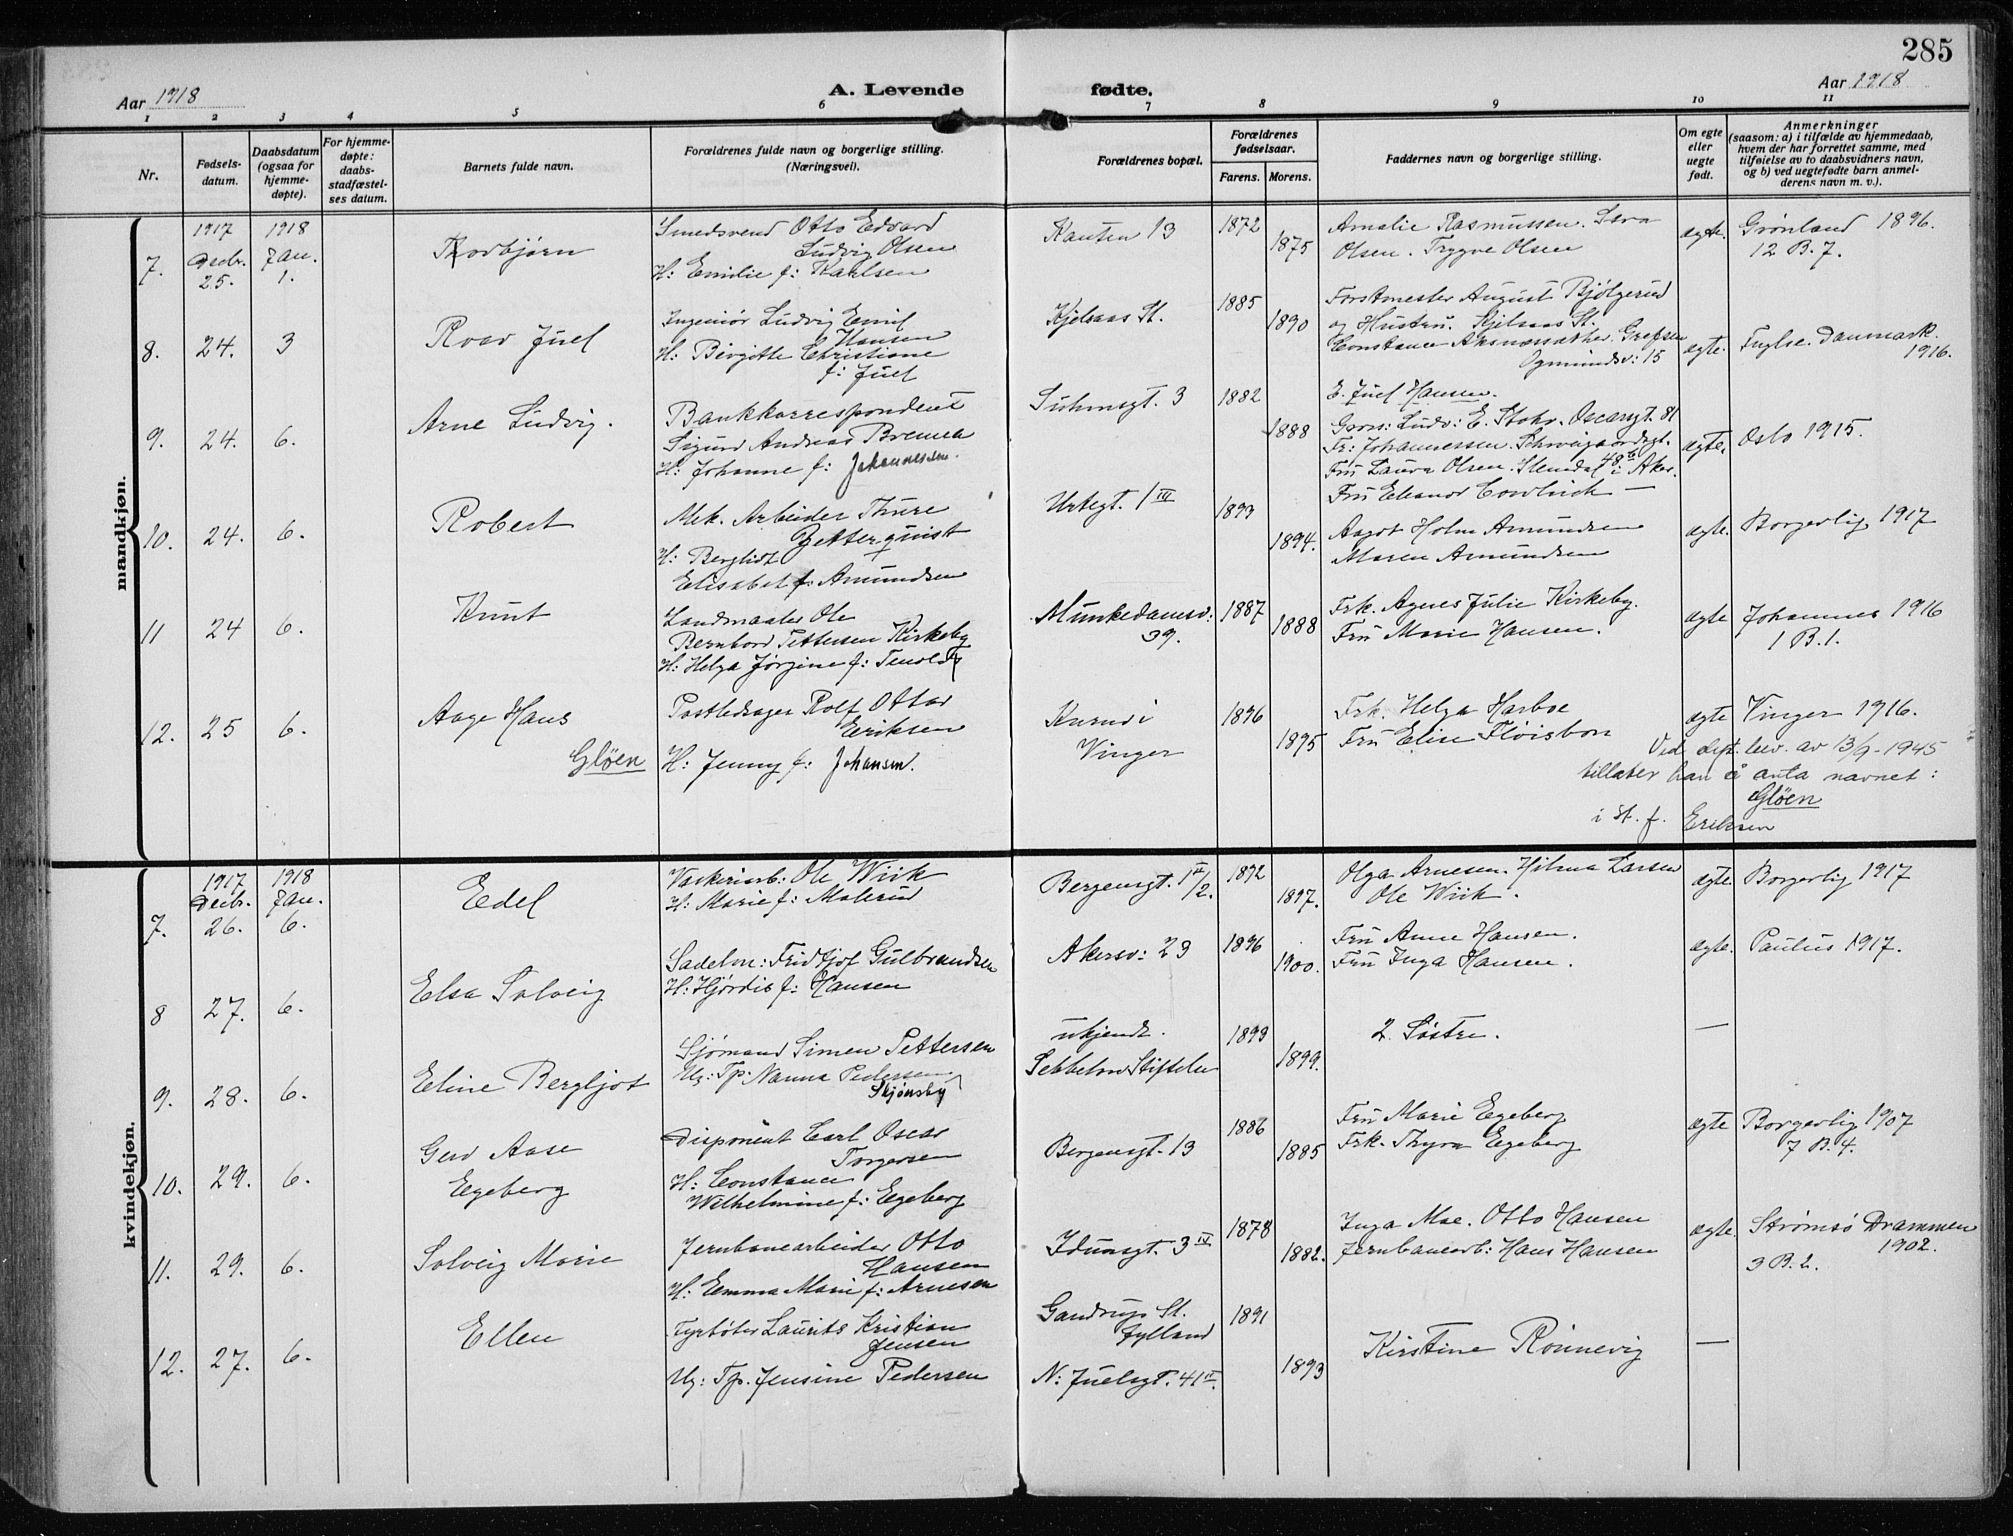 285
Aar 1918
A. Levende fødte.
Aar 1918
1 2 3 4 5 6 7 8 9 10 11
Nr.
Fødsels-
datum.
Daabsdatum
(ogsaa for
hjemme-
døpte).
For hjemme-
døpte:
daabs-
stadfæstel-
ses datum.
Barnets fulde navn.
Forældrenes fulde navn og borgerlige stilling.
(Næringsvei).
Forældrenes bopæl.
Forældrenes
fødselsaar.
Farens. Morens.
Faddernes navn og borgerlige stilling.
Om egte
eller
uegte
født.
Anmerkninger
(saasom: a) i tilfælde av hjemmedaab,
hvem der har forrettet samme, med
tilføielse av to daabsvidners navn,
og b) ved uegtefødte barn anmel-
derens navn m. v.).
mandkjøn.
7.
1917
Decbr.
25.
1918
Jan.
1.
Thorbjørn
Smedsvend Otto Edvard
Ludvig Olsen
H: Emilie f: Karlsen
Kanten 13
1872
1875
Amalie Rasmussen. Sara
Olsen. Trygve Olsen
ægte.
Grønland 1896.
12 B. 7.
8.
24.
3
Roar Juel
Ingeniør Ludvig Emil
Hansen
H: Birgitte Christiane
f: Juel
Kjelsaas St.
1885
1890
Forstmester August Bjølgerud
og Hustru. Kjelsaas St.
Constance Aksnæssæther. Grefsen
Ogmundsv: 15
E. Juel Hansen.
ægte.
Fuglse. Danmark.
1916.
9.
24.
6.
Arne Ludvig.
Bankkorrespondent
Sigurd Andreas Bremer
H: Johanne f: Johannessen.
Suhmsgt. 3
1882
1888
Gros: Ludv: E. Stokr. Oscarsgt. 81
Fr: Johannessen. Schweigaardsgt.
48 b
Fru Laura Olsen. Stendal i Aker.
Fru Eleanor Cowlrick —
ægte.
Oslo 1915.
10.
24.
6.
Robert
Mek. Arbeider Thure
Zetterquist
H: Bergliot
Elisabet f: Amundsen
Urtegt. 1 IV
1893
1894.
Aagot Holm Amundsen
Maren Amundsen
ægte.
Borgerlig 1917
11
24
6.
Knut
Landmaaler Ole
Bernhard Pettersen Kirkeby
H: Helga Jørgine f: Tenold
Munkedamsv:
39.
1887
1888
Frk. Agnes Julie Kirkeby.
Fru Marie Hansen.
ægte
Johannes 1916
1 B. 1.
12.
25
6.
Aage Hans
Gløen
Postbedrager Rolf Ottar
Eriksen
H: Jenny f: Johansen.
Kurud i
Vinger
1896
1895
Frk. Helga Harboe
Fru Elise Fløisbon
ægte
Vinger 1916.
Ved dept. bev. av 13/9-1945
tillates han å anta navnet:
Gløen
i st. f. Eriksen
kvindekjøn.
7.
1917
Decbr.
26.
1918
Jan.
6.
Edel
Vaskeriarb: Ole Wiik
H: Marie f: Malerud
Bergensgt. 1 II/2.
1892
1897.
Olga Arnesen. Hilma Larsen
Ole Wiik.
ægte.
Borgerlig 1917
8
27.
6.
Elsa Solveig
Sadelm: Fridtjof Gulbrandsen
H: Hjørdis f: Hansen
Akersv: 23
1896
1900.
Fru Anna Hansen.
Fru Inga Hansen.
ægte.
Paulus 1917.
9.
28.
6.
Eline Bergljot
Sjømand Simen Pettersen
Ug: Tp: Nanna Pedersen
Skjønsby
ukjendt.
Sebbelow Stiftelse
1893
1899.
2 Søstre.
—
10.
29.
6.
Gerd Aase
Egeberg
Disponent Carl Oscar
Torgersen
H: Constance
Wilhelmine f: Egeberg
Bergensgt. 13
1886
1885
Fru Marie Egeberg
Frk. Thyra Egeberg
ægte
Borgerlig 1907
7 B. 4.
11.
29.
6.
Solveig Marie
Jernbanearbeider Otto
Hansen
H: Emma Marie f: Arnesen
Idunsgt. 3 IV
1878
1882.
Inga Moe. Otto Hansen
Jernbanearb: Hans Hansen
ægte.
Strømsø Drammen
1902.
3 B. 2.
12.
27.
6.
Ellen
Fyrbøter Laurits Kristian
Jensen
Ug: Tp. Jensine Pedersen
Gandrup St.
Jylland
N: Juelsgt. 41 II.
1891
1893
Kirstine Rønnevig
—